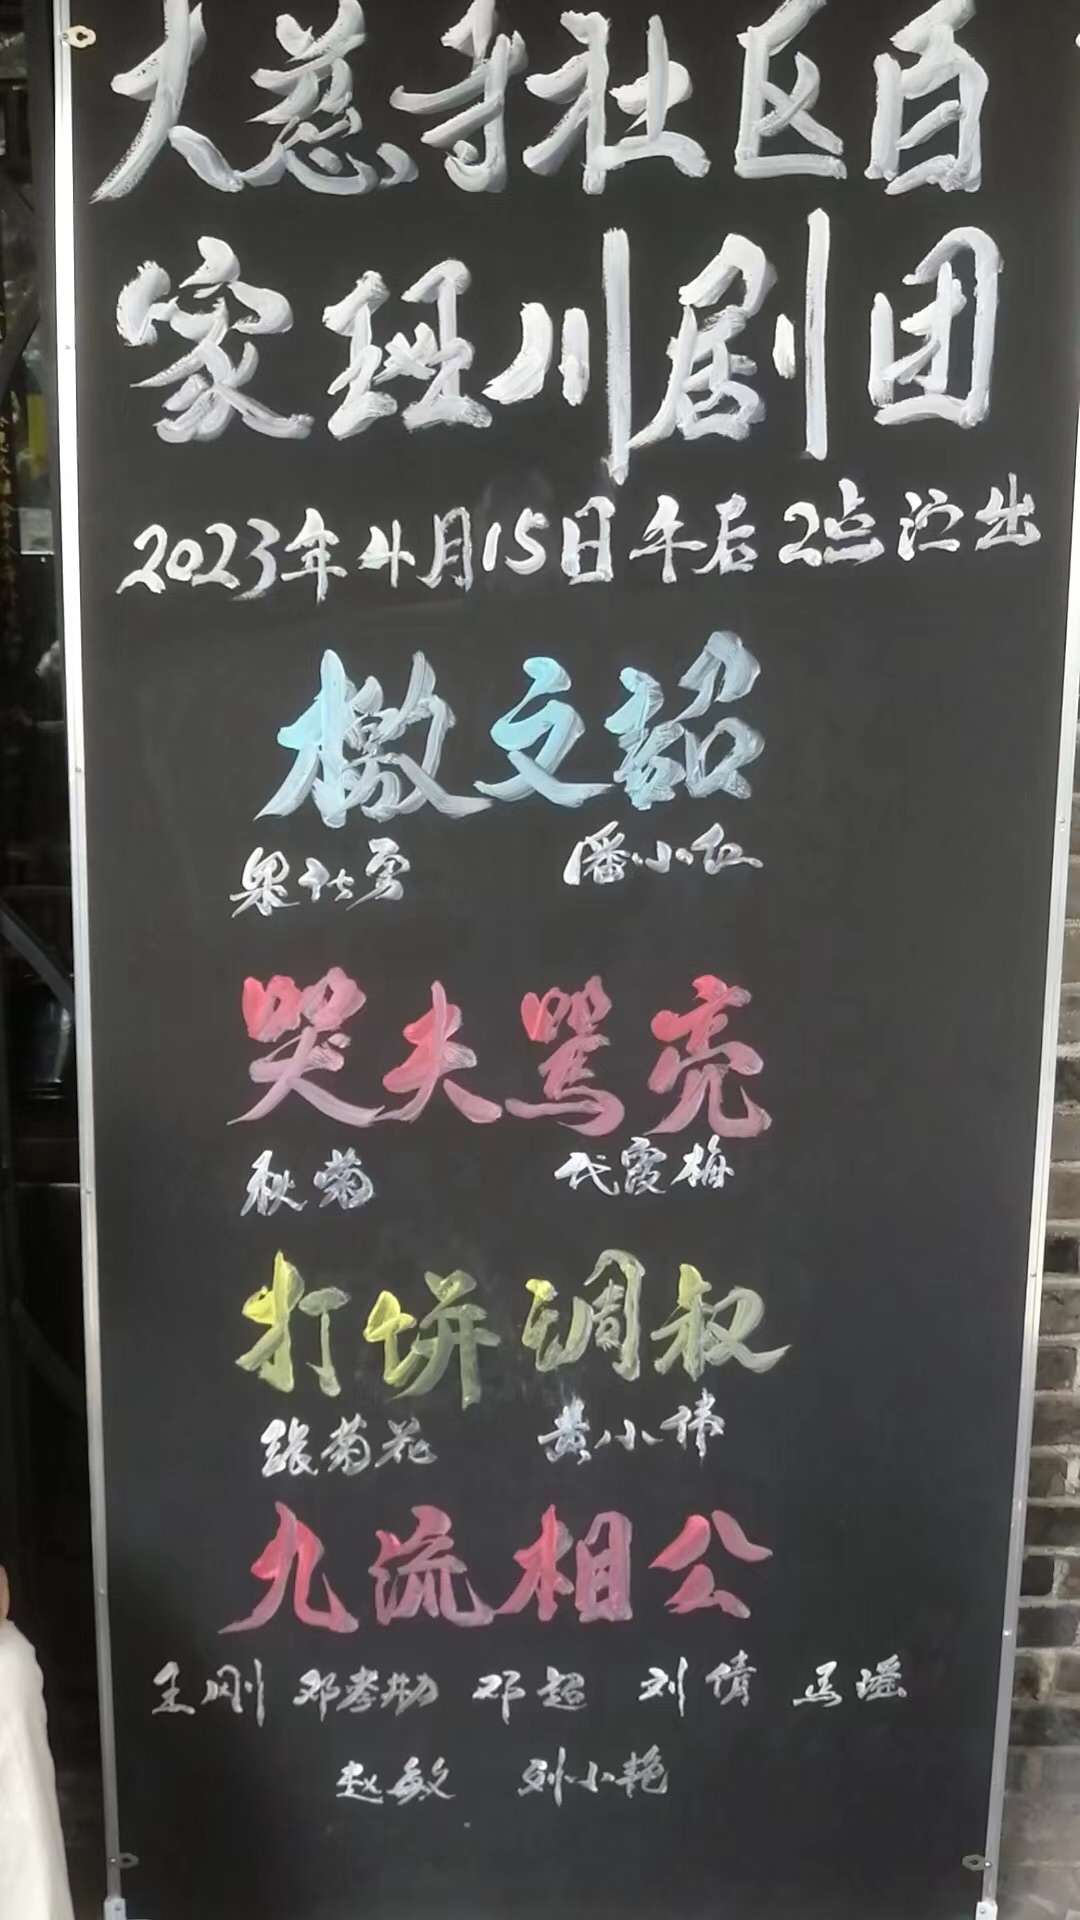 大慈寺社区百
家班川剧团
2023年4月15日午后2点演出
檄文诏
潘小红
哭夫骂亮
秋菊 代霞梅
打饼调叔
张菊花 黄小伟
九流相公
王刚 邓孝勋 邓超 刘倩 马瑶
赵敏 刘小艳